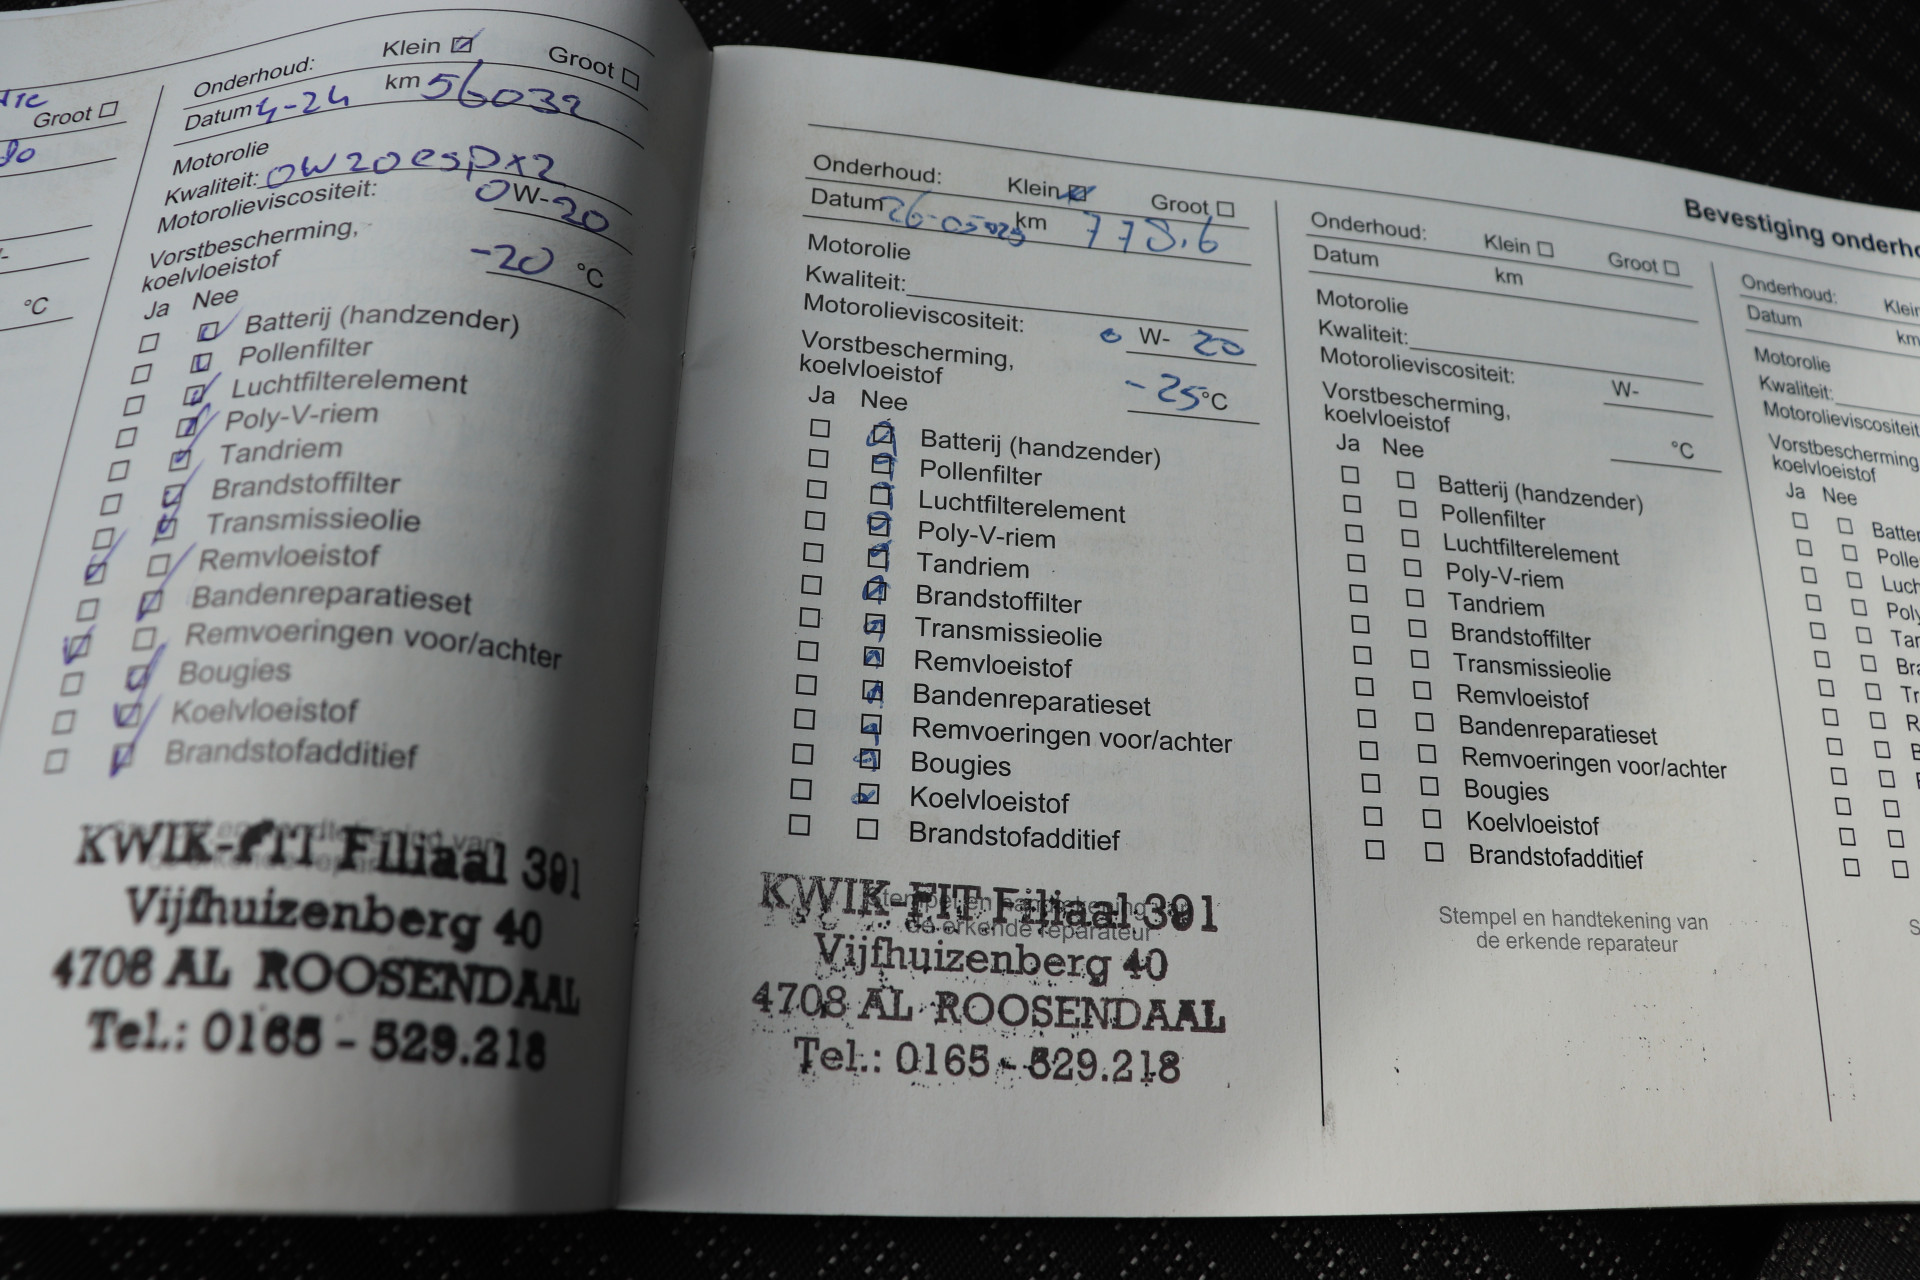 Groot
°C
Onderhoud: Klein Groot
Datum 4-24 km 56032
Motorolie
Kwaliteit: 0W20 esp x2
Motorolieviscositeit: 0 W- 20
Vorstbescherming,
koelvloeistof -20 °C
Ja Nee
Batterij (handzender)
Pollenfilter
Luchtfilterelement
Poly-V-riem
Tandriem
Brandstoffilter
Transmissieolie
Remvloeistof
Bandenreparatieset
Remvoeringen voor/achter
Bougies
Koelvloeistof
Brandstofadditief
KWIK-FIT Filiaal 391
Vijfhuizenberg 40
4708 AL ROOSENDAAL
Tel.: 0165 - 529.218
Onderhoud: Klein Groot
Datum km
Motorolie
Kwaliteit:
Motorolieviscositeit: 0 W- 20
Vorstbescherming,
koelvloeistof -25 °C
Ja Nee
Batterij (handzender)
Pollenfilter
Luchtfilterelement
Poly-V-riem
Tandriem
Brandstoffilter
Transmissieolie
Remvloeistof
Bandenreparatieset
Remvoeringen voor/achter
Bougies
Koelvloeistof
Brandstofadditief
Stempel en handtekening van
de erkende reparateur
KWIK-FIT Filiaal 391
Vijfhuizenberg 40
4708 AL ROOSENDAAL
Tel.: 0165 - 529.218
Bevestiging onderho
Onderhoud: Klein Groot
Datum km
Motorolie
Kwaliteit:
Motorolieviscositeit: W-
Vorstbescherming,
koelvloeistof °C
Ja Nee
Batterij (handzender)
Pollenfilter
Luchtfilterelement
Poly-V-riem
Tandriem
Brandstoffilter
Transmissieolie
Remvloeistof
Bandenreparatieset
Remvoeringen voor/achter
Bougies
Koelvloeistof
Brandstofadditief
Stempel en handtekening van
de erkende reparateur
Onderhoud: Klein
Datum km
Motorolie
Kwaliteit:
Motorolieviscositeit
Vorstbescherming
koelvloeistof
Ja Nee
Batter
Polle
Luch
Poly
Tar
Bra
Tr
R
B